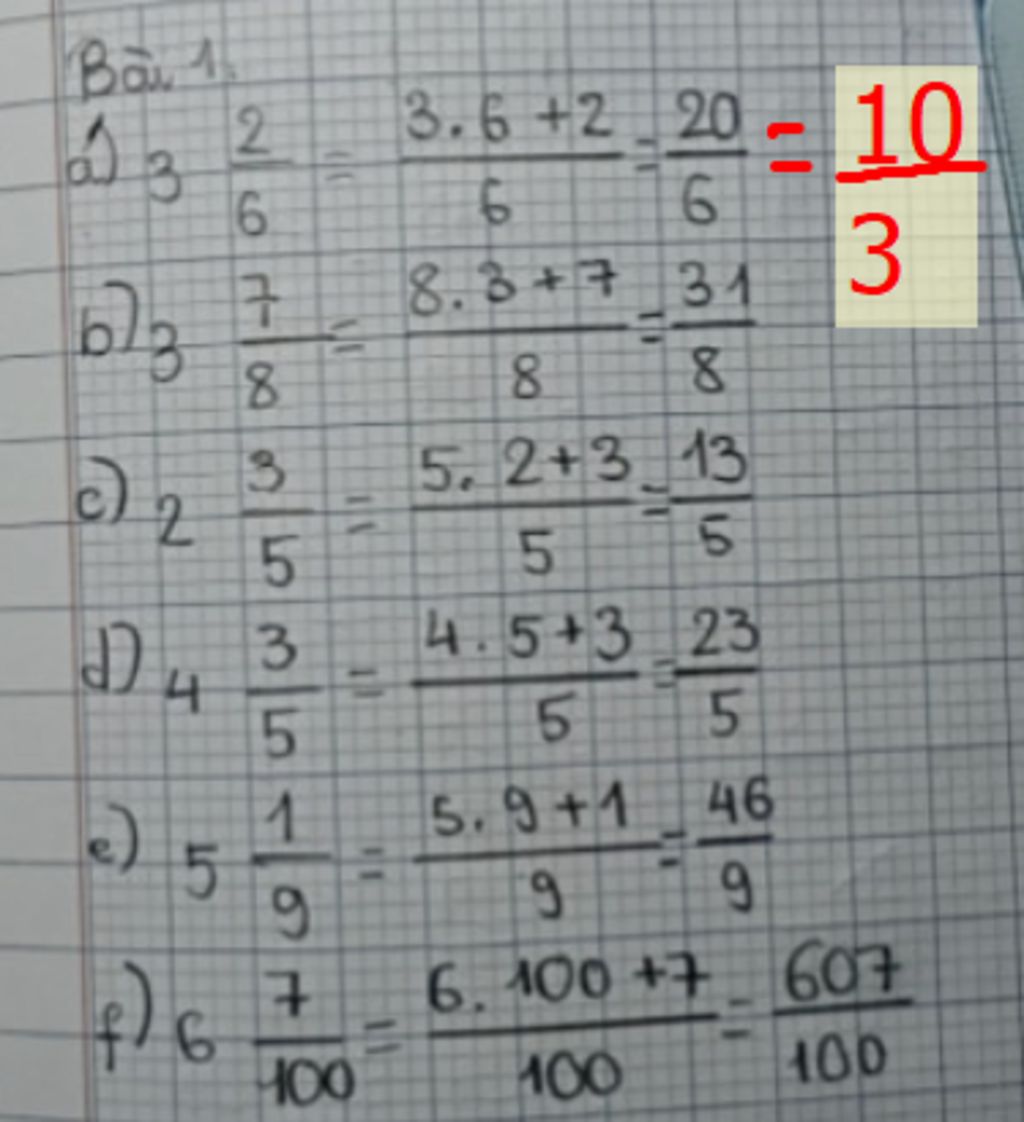 Bài 1.
a) 3 2/6 = (3.6+2)/6 = 20/6 = 10/3
b) 3 7/8 = (8.3+7)/8 = 31/8
c) 2 3/5 = (5.2+3)/5 = 13/5
d) 4 3/5 = (4.5+3)/5 = 23/5
e) 5 1/9 = (5.9+1)/9 = 46/9
f) 6 7/100 = (6.100+7)/100 = 607/100